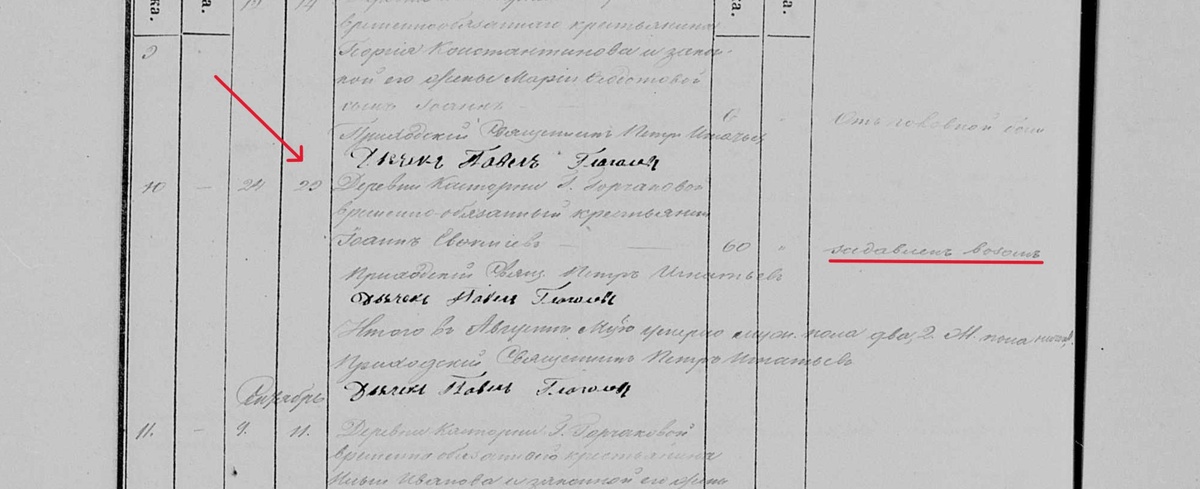 ка.
а.
ка.
а.
временнообязаннаго крестьянина
9
Георгія Константинова и закон-
ной его жены Маріи
сынъ Іоаннъ
6
Отъ головной боли
Приходскій Священникъ Петръ Игнатьевъ
Дьячекъ Павелъ Глаголевъ
10 — 24
Деревни г. Горчаковой
временно-обязанный крестьянинъ
Іоаннъ
60 "
задавленъ возомъ
Приходскій Свящ. Петръ Игнатьевъ
Дьячекъ Павелъ Глаголевъ
Итого въ Августѣ М-цѣ умерло муж. пола два, 2.
Приходскій Священникъ Петръ Игнатьевъ
Дьячекъ Павелъ Глаголевъ
Сентябрь
11. — 9. 11.
Деревни г. Горчаковой
временно обязаннаго крестьянина
Иванова и законной его жены